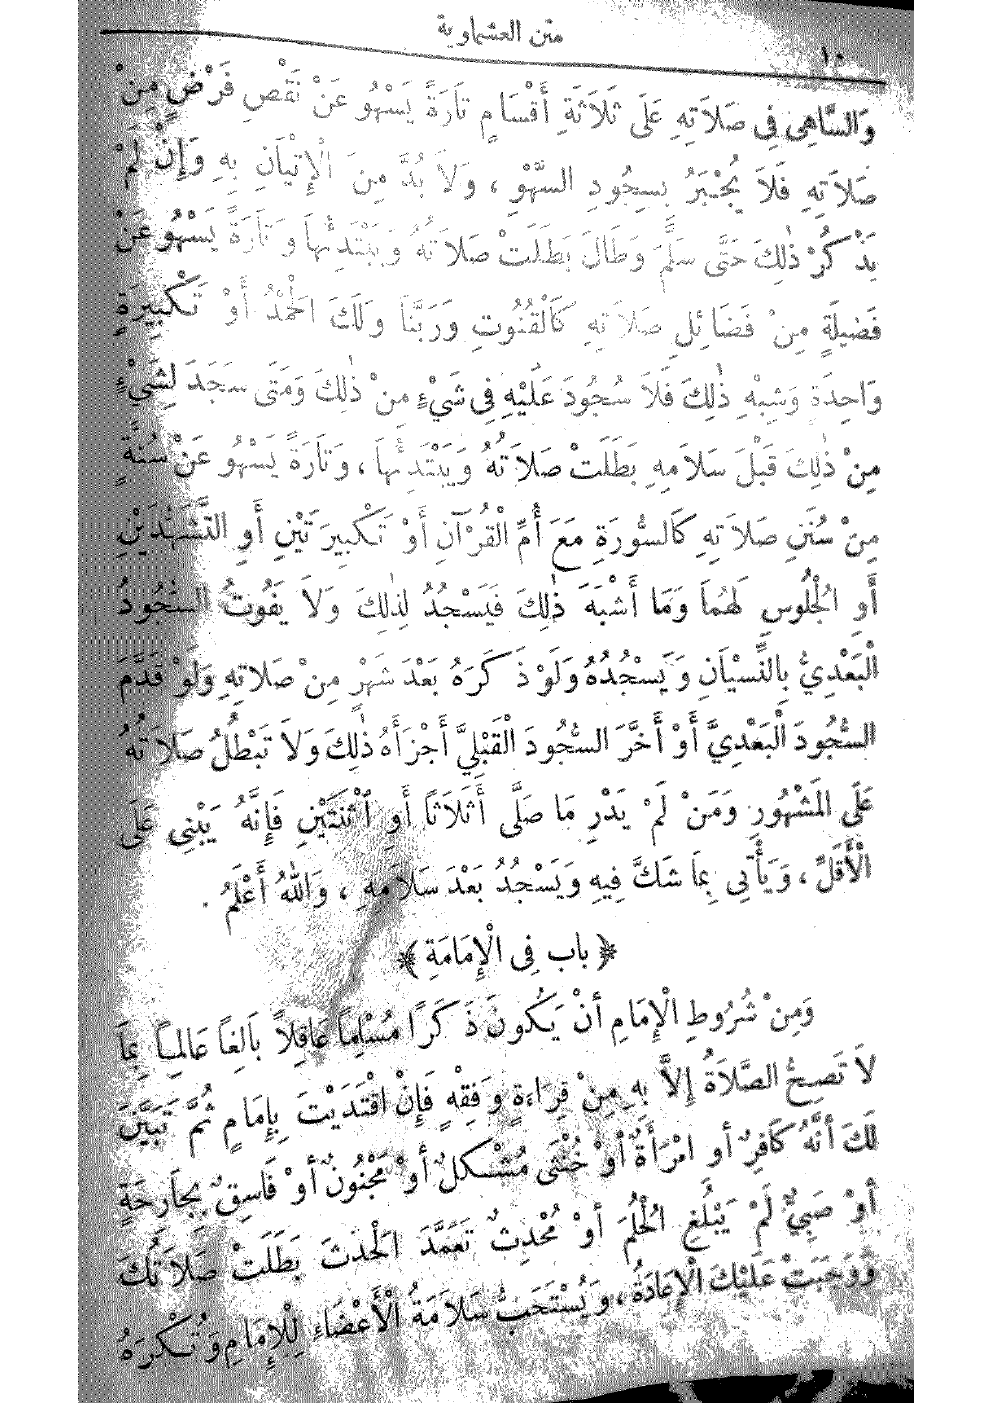 متن العشماوية
١٠
وَالسَّاهِي فِي صَلَاتِهِ عَلَى ثَلَاثَةِ أَقْسَامٍ تَارَةً يَسْهُو عَنْ نَقْصِ فَرْضٍ مِنْ
صَلَاتِهِ فَلَا يُجْبَرُ بِسِجُودِ السَّهْوِ ، وَلَا بُدَّ مِنَ الْإِتْيَانِ بِهِ وَإِنْ لَمْ
يَذْكُرْ ذٰلِكَ حَتَّى سَلَّمَ وَطَالَ بَطَلَتْ صَلَاتُهُ وَيَبْتَدِئُهَا وَتَارَةً يَسْهُو عَنْ
فَضِيلَةٍ مِنْ فَضَائِلِ صَلَاتِهِ كَالْقُنُوتِ وَرَبَّنَا وَلَكَ الْحَمْدُ أَوْ تَكْبِيرَةٍ
وَاحِدَةٍ وَشِبْهِ ذٰلِكَ فَلَا سُجُودَ عَلَيْهِ فِي شَيْءٍ مِنْ ذٰلِكَ وَمَتَى سَجَدَ لِشَيْءٍ
مِنْ ذٰلِكَ قَبْلَ سَلَامِهِ بَطَلَتْ صَلَاتُهُ وَيَبْتَدِئُهَا ، وَتَارَةً يَسْهُو عَنْ سُنَّةٍ
مِنْ سُنَنِ صَلَاتِهِ كَالسُّورَةِ مَعَ أُمِّ الْقُرْآنِ أَوْ تَكْبِيرَتَيْنِ أَوِ التَّشَهُّدَيْنِ
أَوِ الْجُلُوسِ لَهُمَا وَمَا أَشْبَهَ ذٰلِكَ فَيَسْجُدُ لِذٰلِكَ وَلَا يَفُوتُ السُّجُودُ
الْبَعْدِيُّ بِالنِّسْيَانِ وَيَسْجُدُهُ وَلَوْ ذَكَرَهُ بَعْدَ شَهْرٍ مِنْ صَلَاتِهِ وَلَوْ قَدَّمَ
السُّجُودَ الْبَعْدِيَّ أَوْ أَخَّرَ السُّجُودَ الْقَبْلِيَّ أَجْزَأَهُ ذٰلِكَ وَلَا تَبْطُلُ صَلَاتُهُ
عَلَى الْمَشْهُورِ وَمَنْ لَمْ يَدْرِ مَا صَلَّى أَثَلَاثًا أَوِ اثْنَتَيْنِ فَإِنَّهُ يَبْنِي عَلَى
الْأَقَلِّ ، وَيَأْتِي بِمَا شَكَّ فِيهِ وَيَسْجُدُ بَعْدَ سَلَامِهِ ، وَاللهُ أَعْلَمُ .
﴿ باب فِي الْإِمَامَةِ ﴾
وَمِنْ شُرُوطِ الْإِمَامِ أَنْ يَكُونَ ذَكَرًا مُسْلِمًا عَاقِلًا بَالِغًا عَالِمًا بِمَا
لَا تَصِحُّ الصَّلَاةُ إِلَّا بِهِ مِنْ قِرَاءَةٍ وَفِقْهٍ فَإِنْ اقْتَدَيْتَ بِإِمَامٍ ثُمَّ تَبَيَّنَ
لَكَ أَنَّهُ كَافِرٌ أَوِ امْرَأَةٌ أَوْ خُنْثَى مُشْكِلٌ أَوْ مَجْنُونٌ أَوْ فَاسِقٌ بِجَارِحَةٍ
أَوْ صَبِيٌّ لَمْ يَبْلُغِ الْحُلُمَ أَوْ مُحْدِثٌ تَعَمَّدَ الْحَدَثَ بَطَلَتْ صَلَاتُكَ
وَوَجَبَتْ عَلَيْكَ الْإِعَادَةُ ، وَيُسْتَحَبُّ سَلَامَةُ الْأَعْضَاءِ لِلْإِمَامِ وَتُكْرَهُ